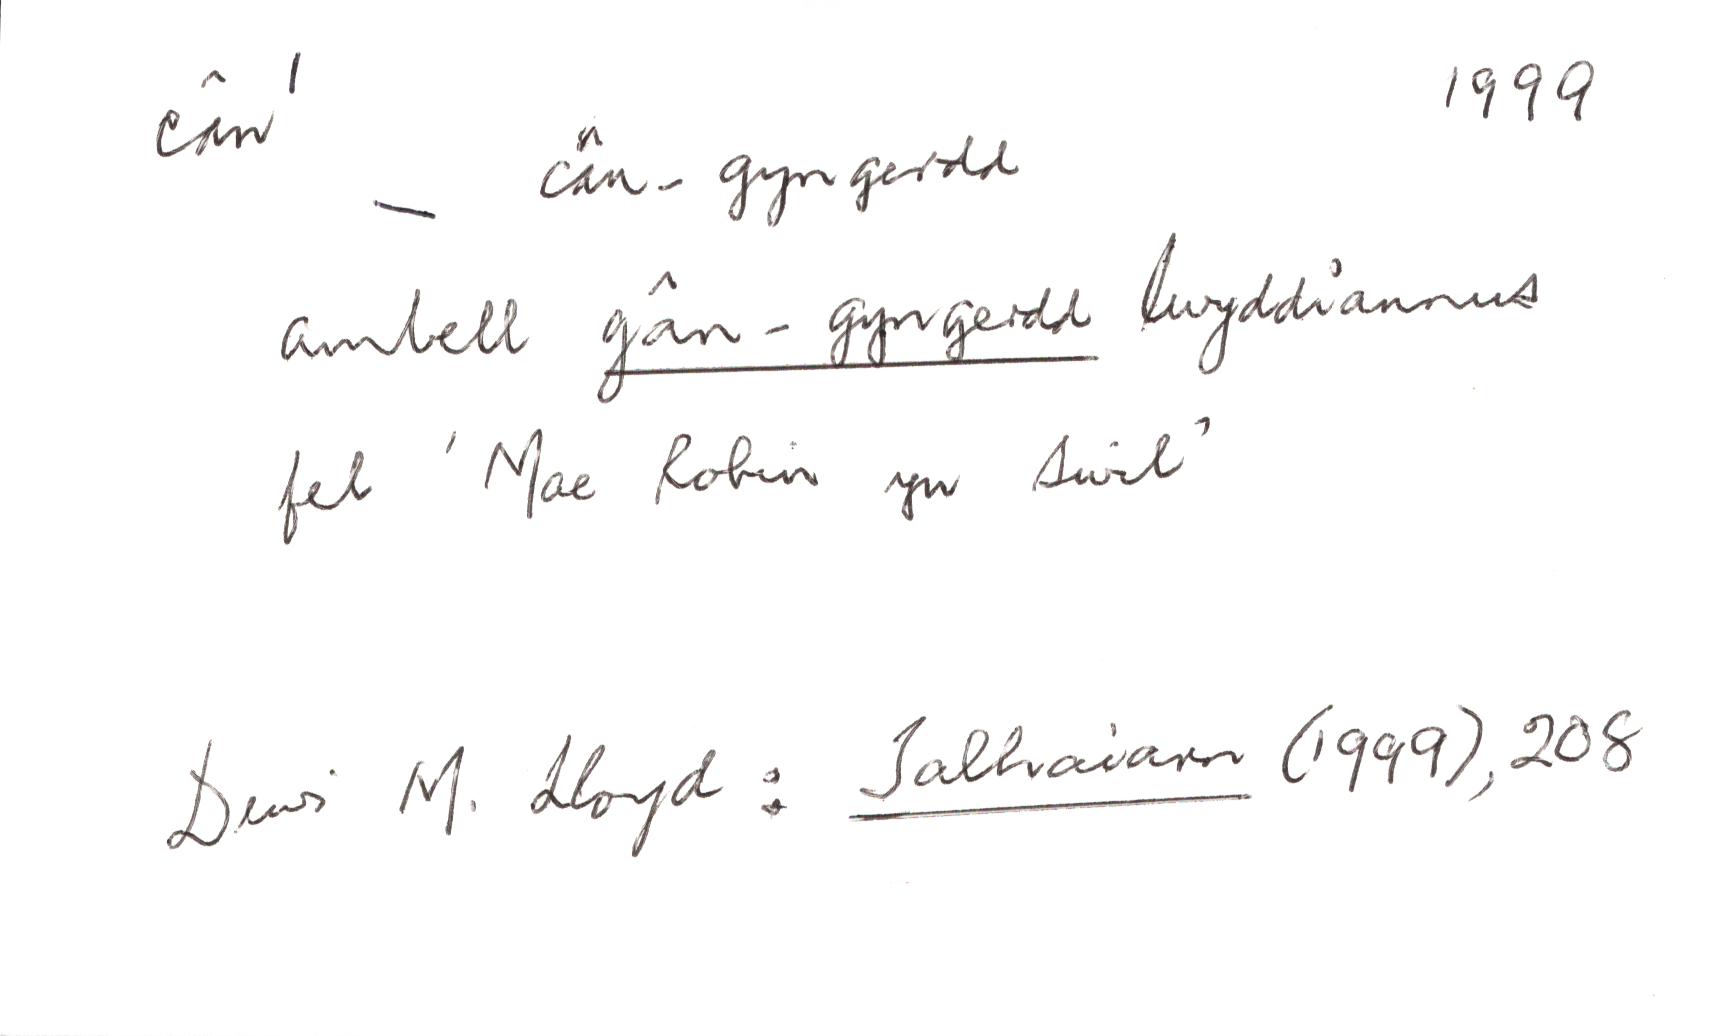 cân¹ 1999
— cân-gyngerdd
ambell gân-gyngerdd lwyddiannus
fel 'Mae Robin yn swil'
Dewi M. Lloyd: Talhaiarn (1999), 208